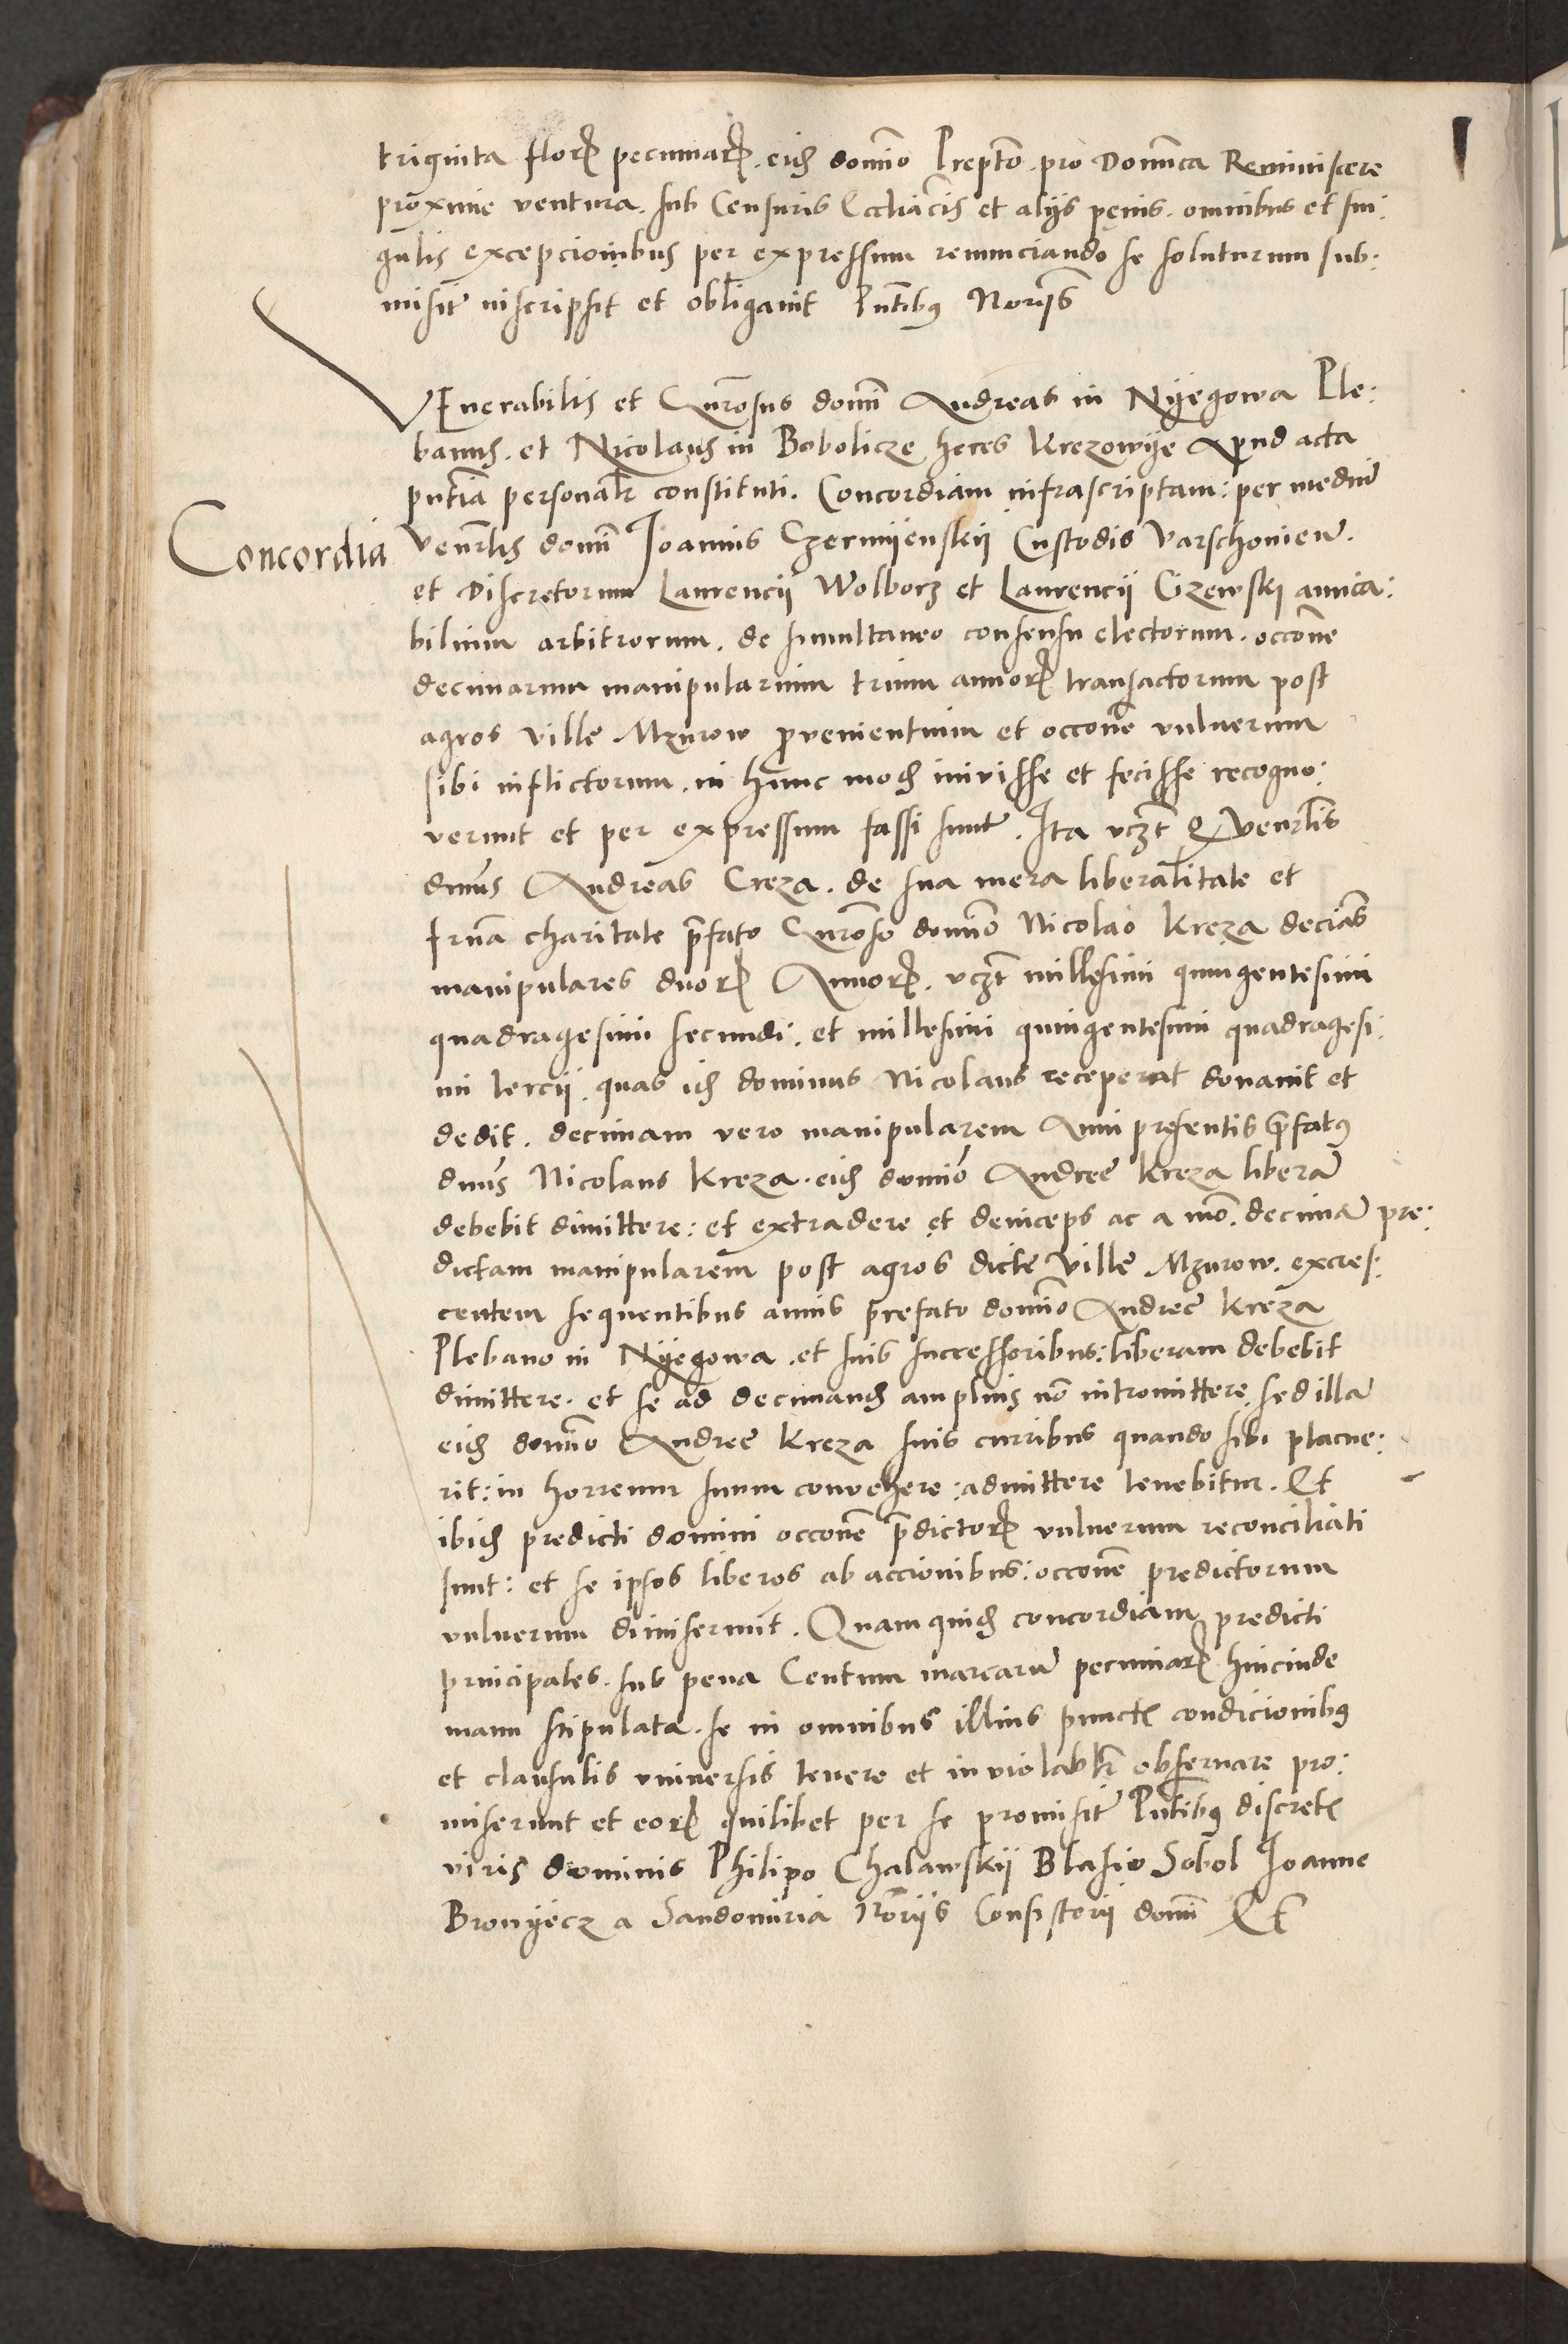 triginta floř pecuniař. eidꝫ domino Preptō. pro Dominica Reminiscere
proxime ventura. sub Censuris Eccliācis et alijs penis. omnibus et sin:
gulis excepcionibus per expressum renunciando se soluturum sub:
misit inscripsit et obligauit Pntibꝰ Norijs
VEnerabilis et Gnrosus domi Andreas in Nyegowa Ple:
banus. et Nicolaus in Bobolicze heres Krezowye Apud acta
pntia personalr constituti. Concordiam infrascriptam: per mediu
Concordia
venrlis domi Joannis Czermyenskij Custodis Varschouien.
et Discretorum Laurencij Wolborz et Laurencij Cizewskj amica:
bilium arbitrorum. de simultaneo consensu electorum. occone
decimarum manipularium trium annorꝫ transactorum post
agros ville Mzurow prouenientium et occone vulnerum
sibi inflictorum. in hunc modꝫ iniuisse et fecisse recogno:
verunt et per expressum fassi sunt. Ita vczt ꝙ Venrlis
dnus Andreas Creza. de sua mera liberalitate et
frna charitate prefato Gnroso domino Nicolao Kreza decias
manipulares duorꝫ Annorꝫ. vczt millesimi quingentesimi
quadragesimi secundi. et millesimi quingentesimi quadragesi:
mi tercij. quas idꝫ dominus Nicolaus receperat donauit et
dedit. decimam vero manipularem Anni presentis prefatꝰ
dnus Nicolaus Kreza. eidꝫ domino Andree Kreza libera
debebit dimittere: et extradere et deinceps ac a mo. decima pre:
dictam manipularem post agros dicte ville Mzurow. excres:
centem sequentibus annis prefato domino Andree Kreza
Plebano in Nyegowa. et suis successoribus: liberam debebit
dimittere. et se ad decimandꝫ amplius no intromittere. sed illa
eidꝫ domino Andree Kreza suis curribus quando sibi placue:
rit: in horreum suum convehere: admittere tenebitur. Et
ibidꝫ predicti domini occone predictorꝫ vulnerum reconciliati
sunt: et se ipsos liberos ab accionibus: occone predictorum
vulnerum dimiserunt. Quam quidꝫ concordiam predicti
principales. sub pena Centum marcaru pecuniarꝫ hincinde
manu stipulata. se in omnibus illius punctꝭ condicionibꝰ
et clausulis vniuersis tenere et inviolablr obseruare pro:
miserunt et eorꝫ quilibet per se promisit Pntibꝰ discretꝭ
viris dominis Philipo Chalawskij Blasio Sobol Joanne
Bronyecz a Sandomiria Norijs Consistorij domi Et